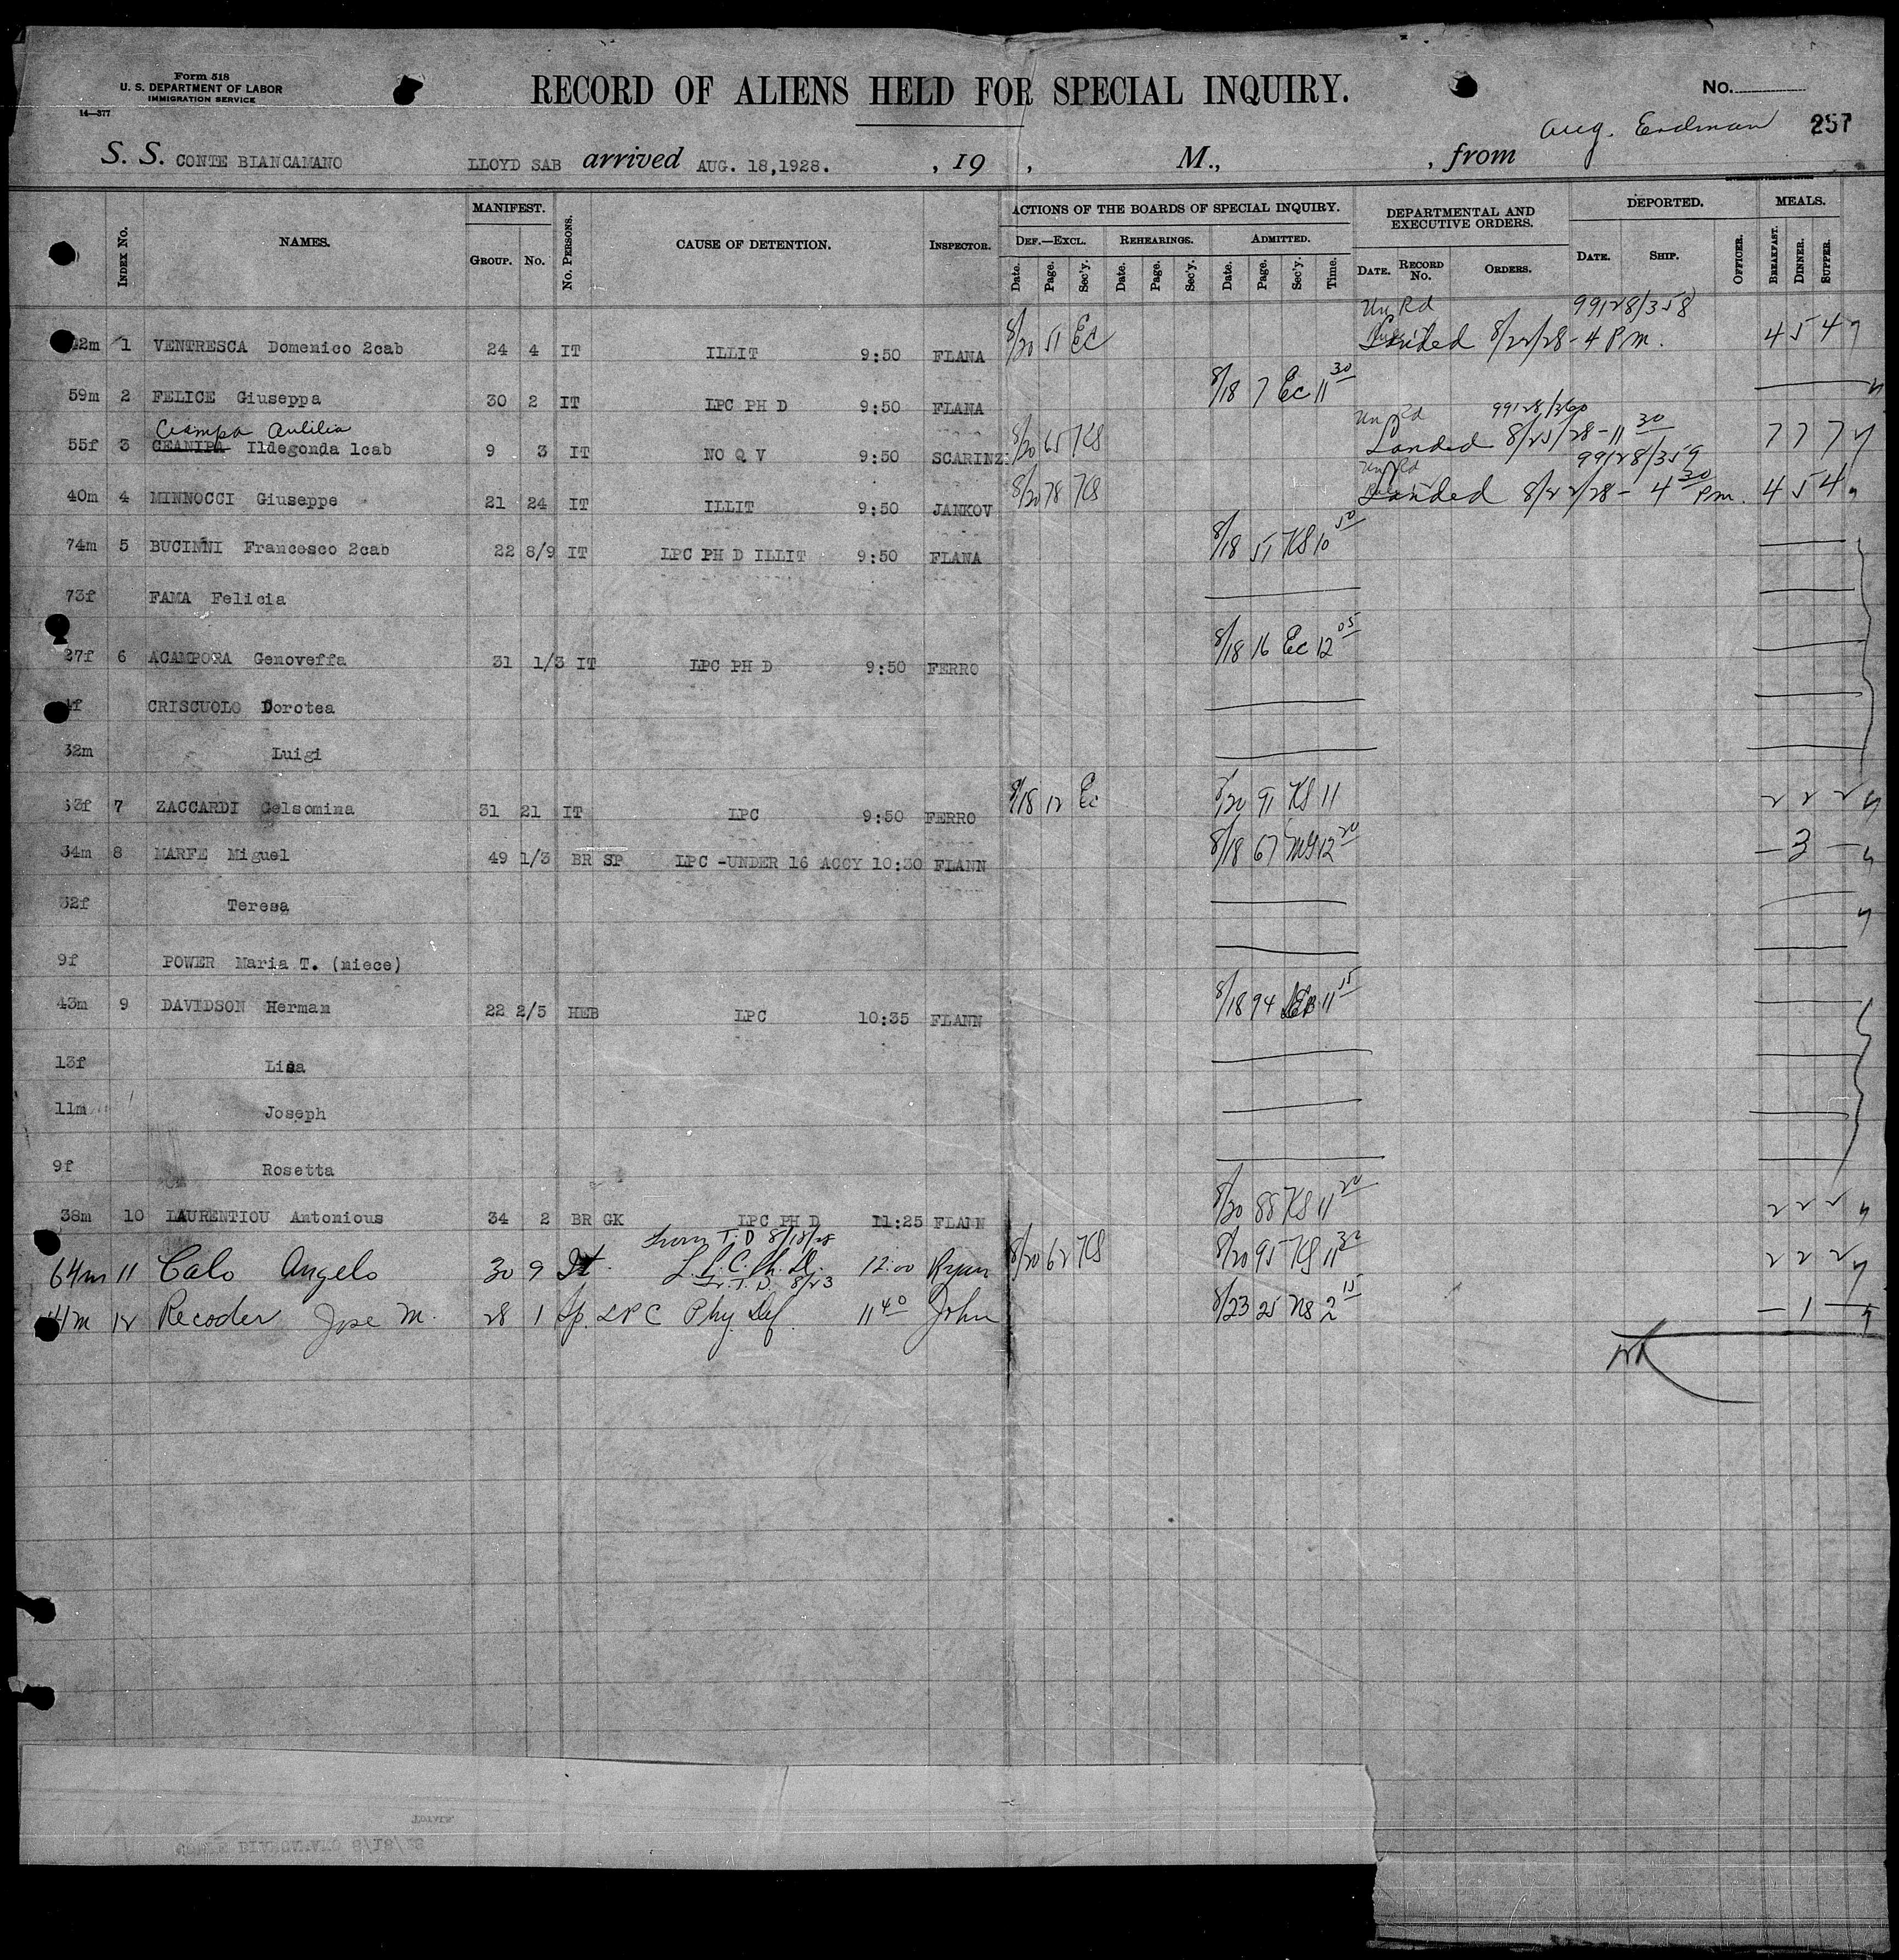 Form 518
U. S. DEPARTMENT OF LABOR
IMMIGRATION SERVICE
14—377
RECORD OF ALIENS HELD FOR SPECIAL INQUIRY.
No.
Aug. Erdman 257
S. S. CONTE BIANCAMANO LLOYD SAB arrived AUG. 18,1928. , 19 , M., , from
INDEX No. NAMES. MANIFEST. GROUP. No. No. PERSONS. CAUSE OF DETENTION. INSPECTOR. ACTIONS OF THE BOARDS OF SPECIAL INQUIRY. DEPARTMENTAL AND EXECUTIVE ORDERS. DEPORTED. MEALS.
DEF.—EXCL. REHEARINGS. ADMITTED.
Date. Page. Sec'y. Date. Page. Sec'y. Date. Page. Sec'y. Time. DATE. RECORD No. ORDERS. DATE. SHIP. OFFICER. BREAKFAST. DINNER. SUPPER.
Rd 99128/358
2m 1 VENTRESCA Domenico 2cab 24 4 IT ILLIT 9:50 FLANA 8/20 51 EC Landed 8/22/28 - 4 Pm. 4 5 4
59m 2 FELICE Giuseppa 30 2 IT LPC PH D 9:50 FLANA 8/18 7 Ec 11 30
Ciampa Rd 99128/360
55f 3 CEANIPA Ildegonda 1cab 9 3 IT NO Q V 9:50 SCARINZ 8/20 65 KS Landed 8/25/28 - 11 30 7 7 7
Rd 99128/359
40m 4 MINNOCCI Giuseppe 21 24 IT ILLIT 9:50 JANKOV 8/20 78 KS Landed 8/22/28 - 4 30 Pm. 4 5 4
74m 5 BUCINNI Francesco 2cab 22 8/9 IT LPC PH D ILLIT 9:50 FLANA 8/18 51 KS 10 50
73f FAMA Felicia
27f 6 ACAMPORA Genoveffa 31 1/3 IT LPC PH D 9:50 FERRO 8/18 16 Ec 12 05
4f CRISCUOLO Dorotea
32m Luigi
53f 7 ZACCARDI Gelsomina 31 21 IT LPC 9:50 FERRO 8/18 12 Ec 8/20 91 KS 11 2 2 2
34m 8 MARFE Miguel 49 1/3 BR SP LPC -UNDER 16 ACCY 10:30 FLANN 8/18 67 12 20 — 3 —
32f Teresa
9f POWER Maria T. (niece)
43m 9 DAVIDSON Herman 22 2/5 HEB LPC 10:35 FLANN 8/18 94 11 15
13f Lisa
11m Joseph
9f Rosetta
38m 10 LAURENTIOU Antonious 34 2 BR GK LPC PH D 11:25 FLANN 8/20 88 KS 11 20 2 2 2
from T.D 8/18/28
64m 11 Calo Angelo 30 9 It. L.P.C. Ph. D. 12:00 Ryan 8/20 62 KS 8/20 95 KS 11 30 2 2 2
Fr. T. D. 8/23
44m 12 Recoder Jose M. 28 1 Sp. LPC Phy. Def. 11 40 John 8/23 25 NS 2 15 — 1 —